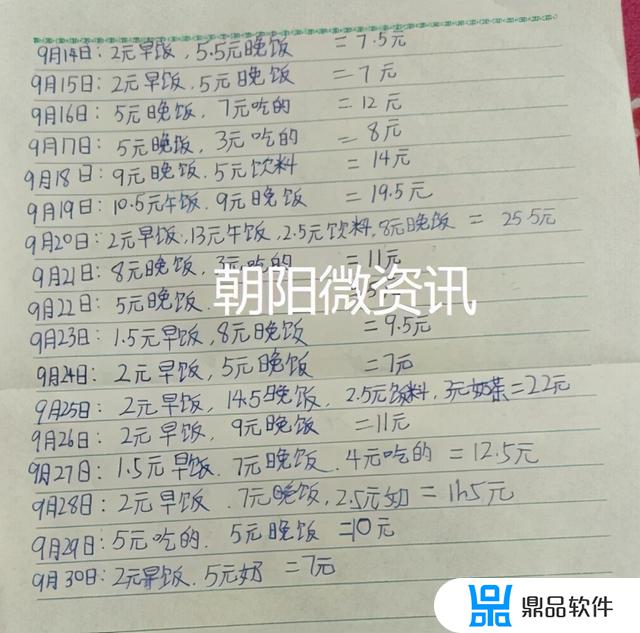 9月14日: 2元早饭, 5.5元晚饭 = 7.5元
9月15日: 2元早饭, 5元晚饭 = 7元
9月16日: 5元晚饭, 7元吃的 = 12元
9月17日: 5元晚饭, 3元吃的 = 8元
9月18日: 9元晚饭, 5元饮料 = 14元
9月19日: 10.5元午饭. 9元晚饭 = 19.5元
9月20日: 2元早饭, 13元午饭, 2.5元饮料, 8元晚饭 = 25.5元
9月21日: 8元晚饭, 3元吃的 = 11元
朝阳微资讯
9月22日: 5元晚饭.
9月23日: 1.5元早饭, 8元晚饭 = 9.5元
9月24日: 2元早饭, 5元晚饭 = 7元
9月25日: 2元早饭, 14.5晚饭, 2.5元饮料, 3元奶茶=22元
9月26日: 2元早饭, 9元晚饭 =11元
9月27日: 1.5元早饭. 7元晚饭. 4元吃的 = 12.5元
9月28日: 2元早饭 . 7元晚饭, 2.5元奶 = 11.5元
9月29日: 5元吃的. 5元晚饭 =10元
9月30日: 2元早饭. 5元奶 =7元
鼎品软件